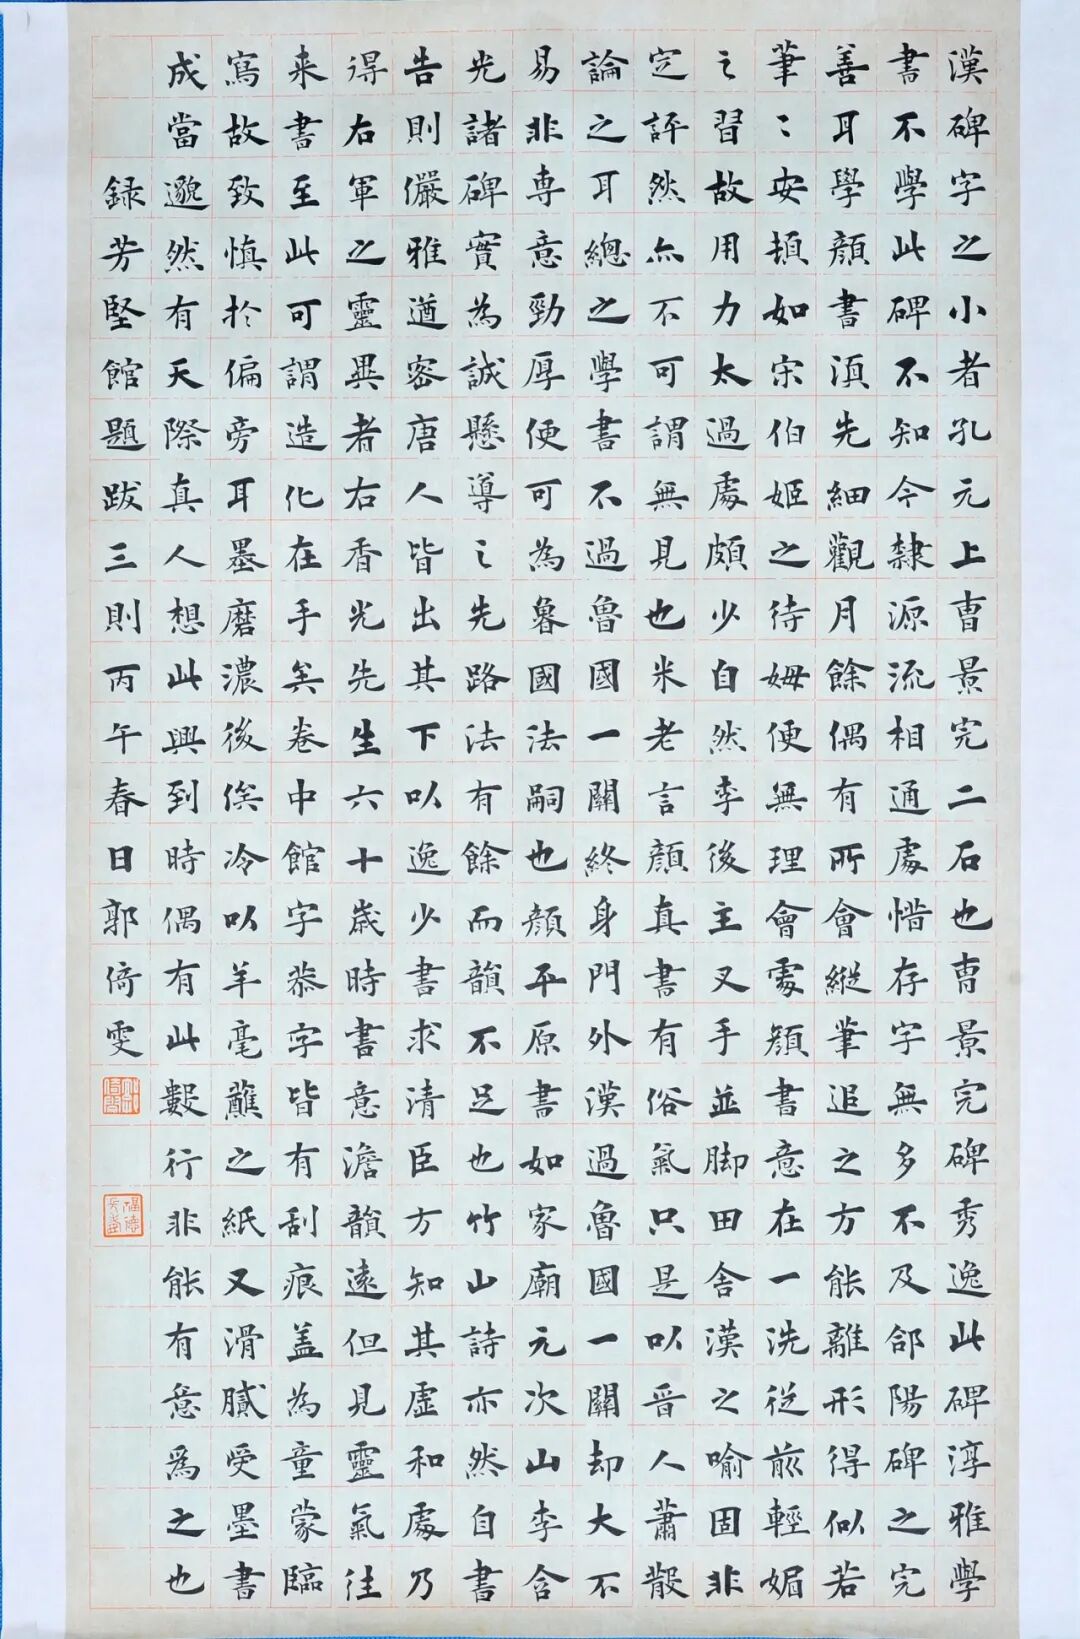 漢碑字之小者孔元上曺景完二石也曺景完碑秀逸此碑淳雅學
書不學此碑不知今隸源流相通處惜存字無多不及郃陽碑之完
善耳學顏書湏先細觀月餘偶有所會縱筆追之方能離形得似若
筆〻安頓如宋伯姬之待姆便無理會處顏書意在一洗從前輕媚
之習故用力太過處頗少自然李後主叉手並脚田舍漢之喻固非
定評然亦不可謂無見也米老言顏真書有俗氣只是以晉人蕭散
論之耳總之學書不過魯國一關終身門外漢過魯國一關却大不
易非專意勁厚便可為魯國法嗣也顏平原書如家廟元次山李含
光諸碑實為誠懸導之先路法有餘而韻不足也竹山詩亦然自書
告則儼雅遒密唐人皆出其下以逸少書求清臣方知其虛和處乃
得右軍之靈異者右香光先生六十歲時書意澹韻遠但見靈氣往
来書至此可謂造化在手矣卷中館字恭字皆有刮痕盖為童蒙臨
寫故致慎於偏旁耳墨磨濃後俟冷以羊毫蘸之紙又滑膩受墨書
成當邈然有天際真人想此興到時偶有此數行非能有意為之也
録芳堅館題跋三則丙午春日郭倚雯